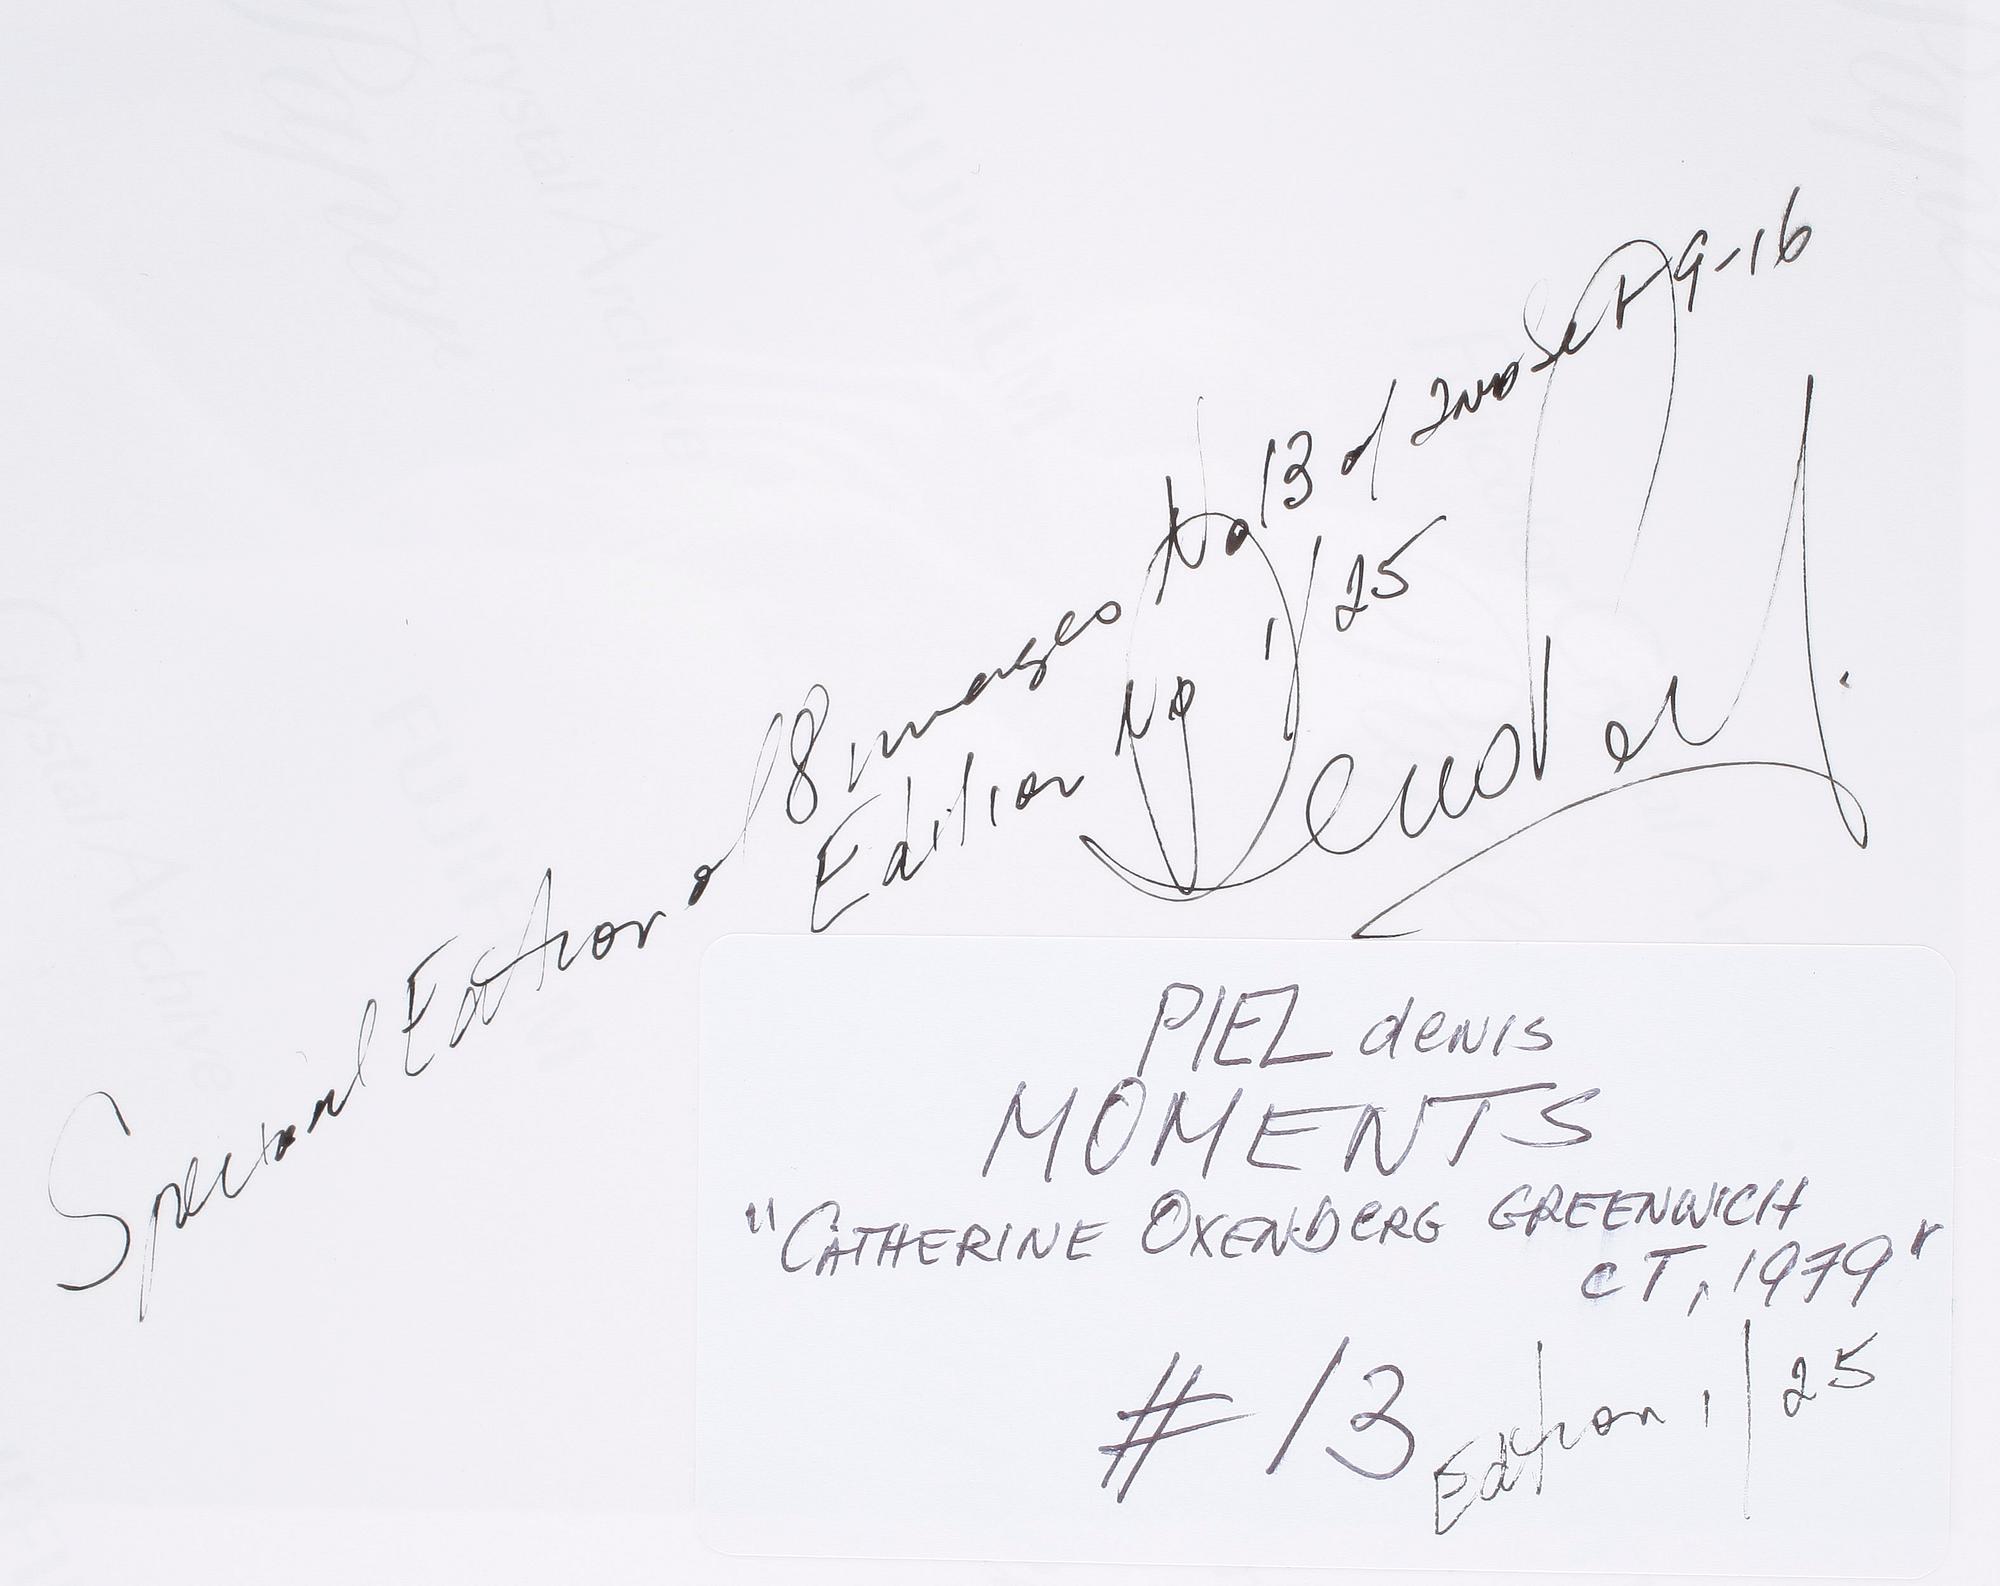 Special Edition of 8 images No 13 of 2nd Set 9-16
Edition No 1/25
Denis Piel.
PIEL denis
MOMENTS
"CATHERINE OXENBERG GREENWICH
CT, 1979"
# 13 Edition 1/25
FUJIFILM
Crystal Archive
Paper